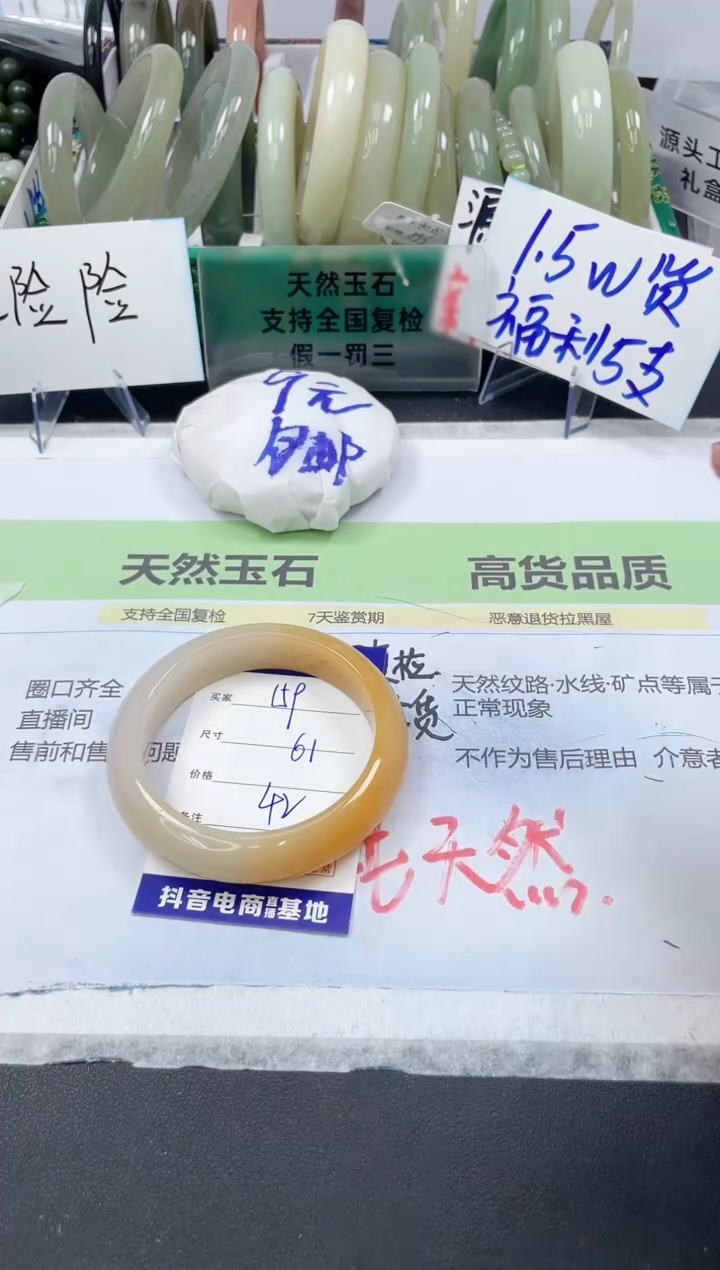 源头工
礼盒
险 险
天然玉石
支持全国复检
假一罚三
源
1.5W货
福利5支
9元
包邮
天然玉石 高货品质
支持全国复检 7天鉴赏期 恶意退货拉黑屋
圈口齐全
直播间
售前和售 问题
天然纹路·水线·矿点等属于
正常现象
不作为售后理由 介意者
买家 159
尺寸 61
价格 42
备注
抖音电商直播基地
天然